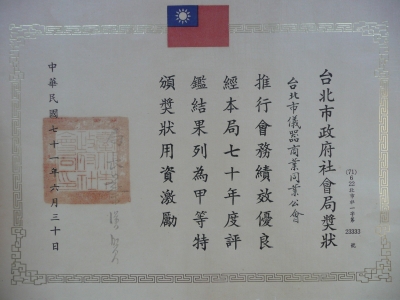 台北市政府社會局獎狀
(71) 6 22 北市社一字第 23333 號
台北市儀器商業同業公會
推行會務績效優良
經本局七十年度評
鑑結果列為甲等特
頒獎狀用資激勵
中華民國七十一年六月三十日